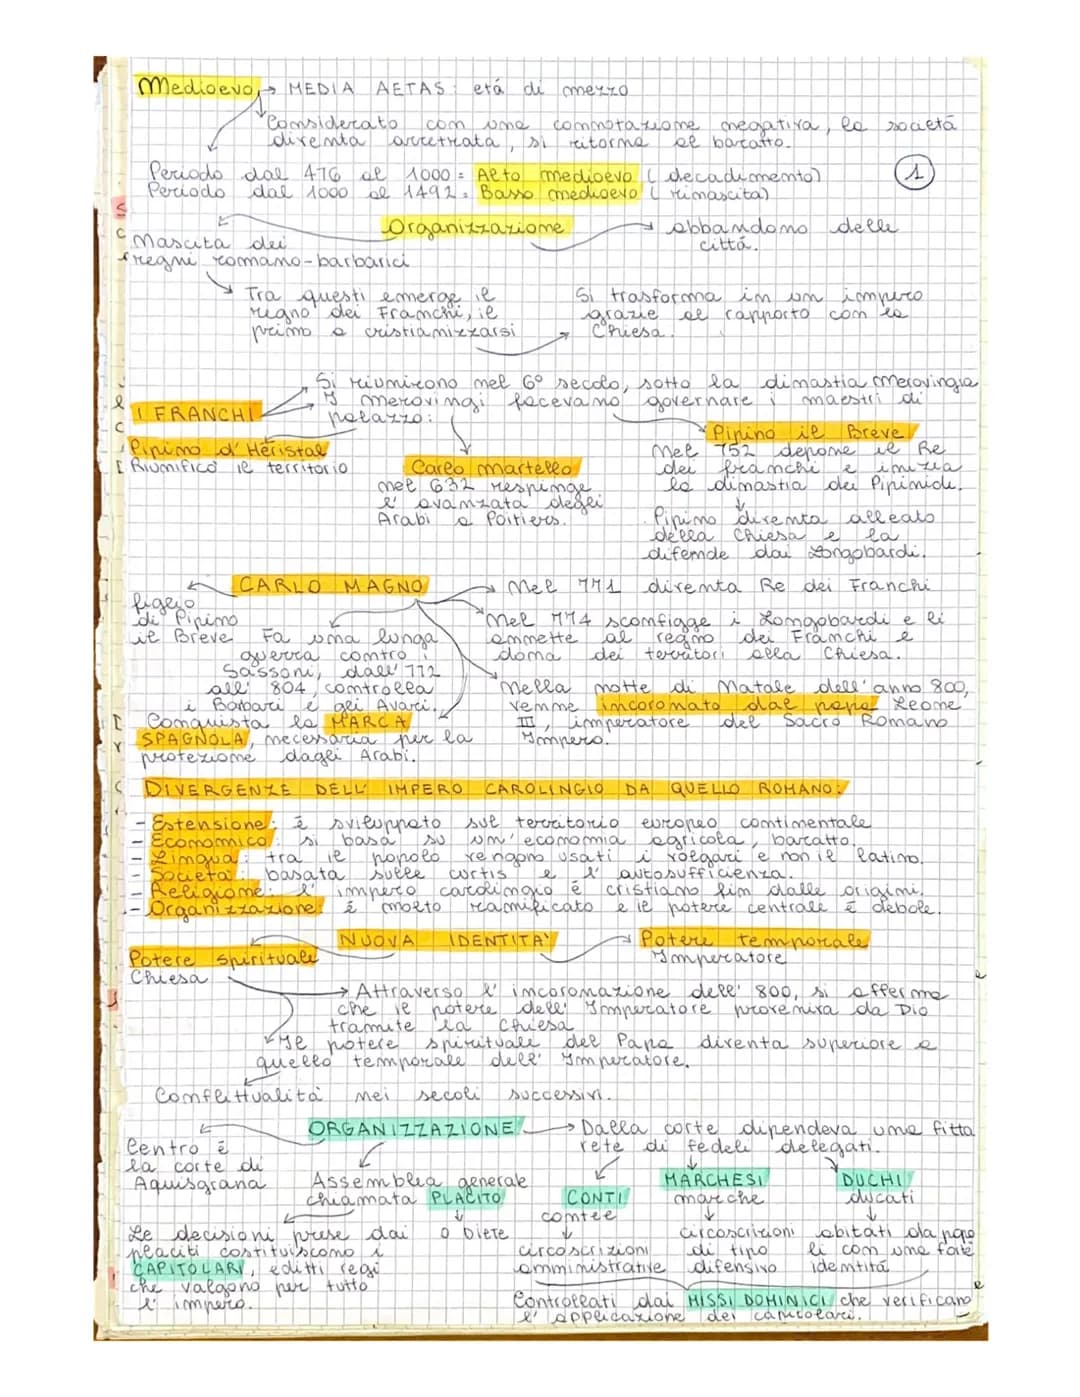 Medioevo → MEDIA AETAS: etá di mezzo
Considerato con una connotazione negativa, la società
diventa arretrata, si ritorna al baratto.
Periodo dal 476 al 1000 = Alto medioevo (decadimento)
1
Periodo dal 1000 al 1492 = Basso medioevo (rinascita)
Organizzazione
abbandono delle
città.
Nascita dei
regni romano-barbarici
Tra questi emerge il
regno dei Franchi, il
primo a cristianizzarsi
Si trasforma in un impero
grazie al rapporto con la
Chiesa.
I FRANCHI
Si riunirono nel 6° secolo, sotto la dinastia merovingia
I merovingi facevano governare i maestri di
palazzo:
Pipino d'Heristal
Riunificò il territorio
Carlo martello
nel 632 respinge
l'avanzata degli
Arabi a Poitiers.
Pipino il Breve
Nel 752 depone il Re
dei franchi e inizia
la dinastia dei Pipinidi.
Pipino diventa alleato
della Chiesa e la
difende dai Longobardi.
CARLO MAGNO
figlio
di Pipino
il Breve
Nel 771 diventa Re dei Franchi
Nel 774 sconfigge i Longobardi e li
annette al regno dei Franchi e
dona dei territori alla Chiesa.
Fa una lunga
guerra contro i
Sassoni, dall'772
all'804, controlla
i Barbari e gli Avari.
Nella notte di Natale dell'anno 800,
venne incoronato dal papa Leone
III, imperatore del Sacro Romano
Impero.
Conquista la MARCA
SPAGNOLA, necessaria per la
protezione dagli Arabi.
DIVERGENZE DELL'IMPERO CAROLINGIO DA QUELLO ROMANO:
- Estensione: è sviluppato sul territorio europeo continentale
- Economico: si basa su un'economia agricola, baratto.
- Lingua: tra il popolo vengono usati i volgari e non il latino.
- Società: basata sulle curtis e l'autosufficienza.
- Religione: l'impero carolingio è cristiano fin dalle origini.
- Organizzazione: è molto ramificato e il potere centrale è debole.
NUOVA IDENTITA'
Potere spirituale
Chiesa
Potere temporale
Imperatore
Attraverso l'incoronazione dell'800, si afferma
che il potere dell'Imperatore proveniva da Dio
tramite la Chiesa
Il potere spirituale del Papa diventa superiore a
quello temporale dell'Imperatore.
Conflittualità nei secoli successivi.
ORGANIZZAZIONE
Centro è
la corte di
Aquisgrana
Assemblea generale
chiamata PLACITO
Dalla corte dipendeva una fitta
rete di fedeli delegati.
CONTI
contee
circoscrizioni
amministrative
MARCHESI
marche
circoscrizioni
di tipo
difensivo
DUCHI
ducati
abitati da popo
li con una forte
identità
Le decisioni prese dai
placiti costituiscono i
CAPITOLARI, editti regi
che valgono per tutto
l'impero.
Controllati dai MISSI DOMINICI che verificano
l'applicazione dei capitolari.